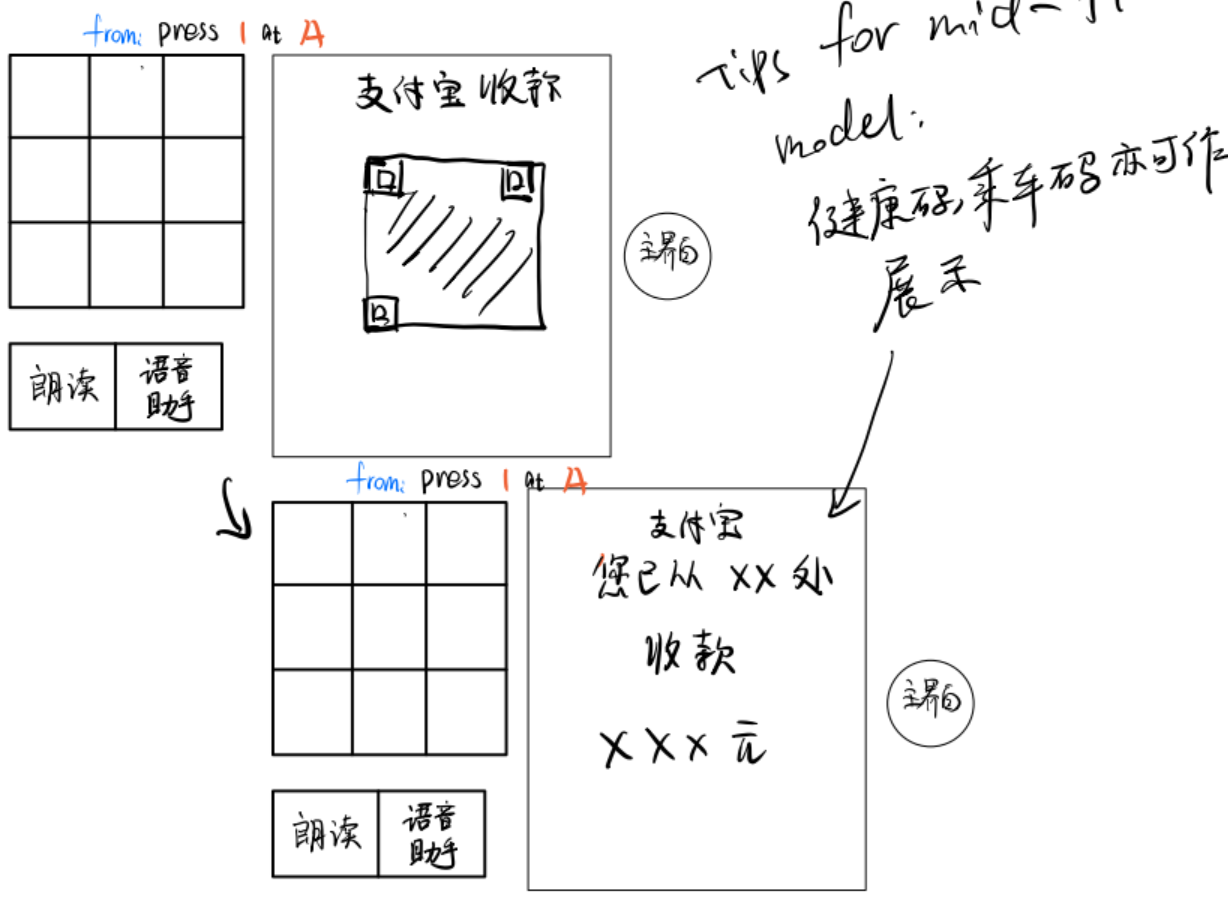 from: press 1 at A
支付宝收款
主界面
朗读
语音
助手
Tips for mid-
model:
健康码,乘车码亦可作
展示
from: press 1 at A
支付宝
您已从 XX 处
收款
XXX 元
主界面
朗读
语音
助手